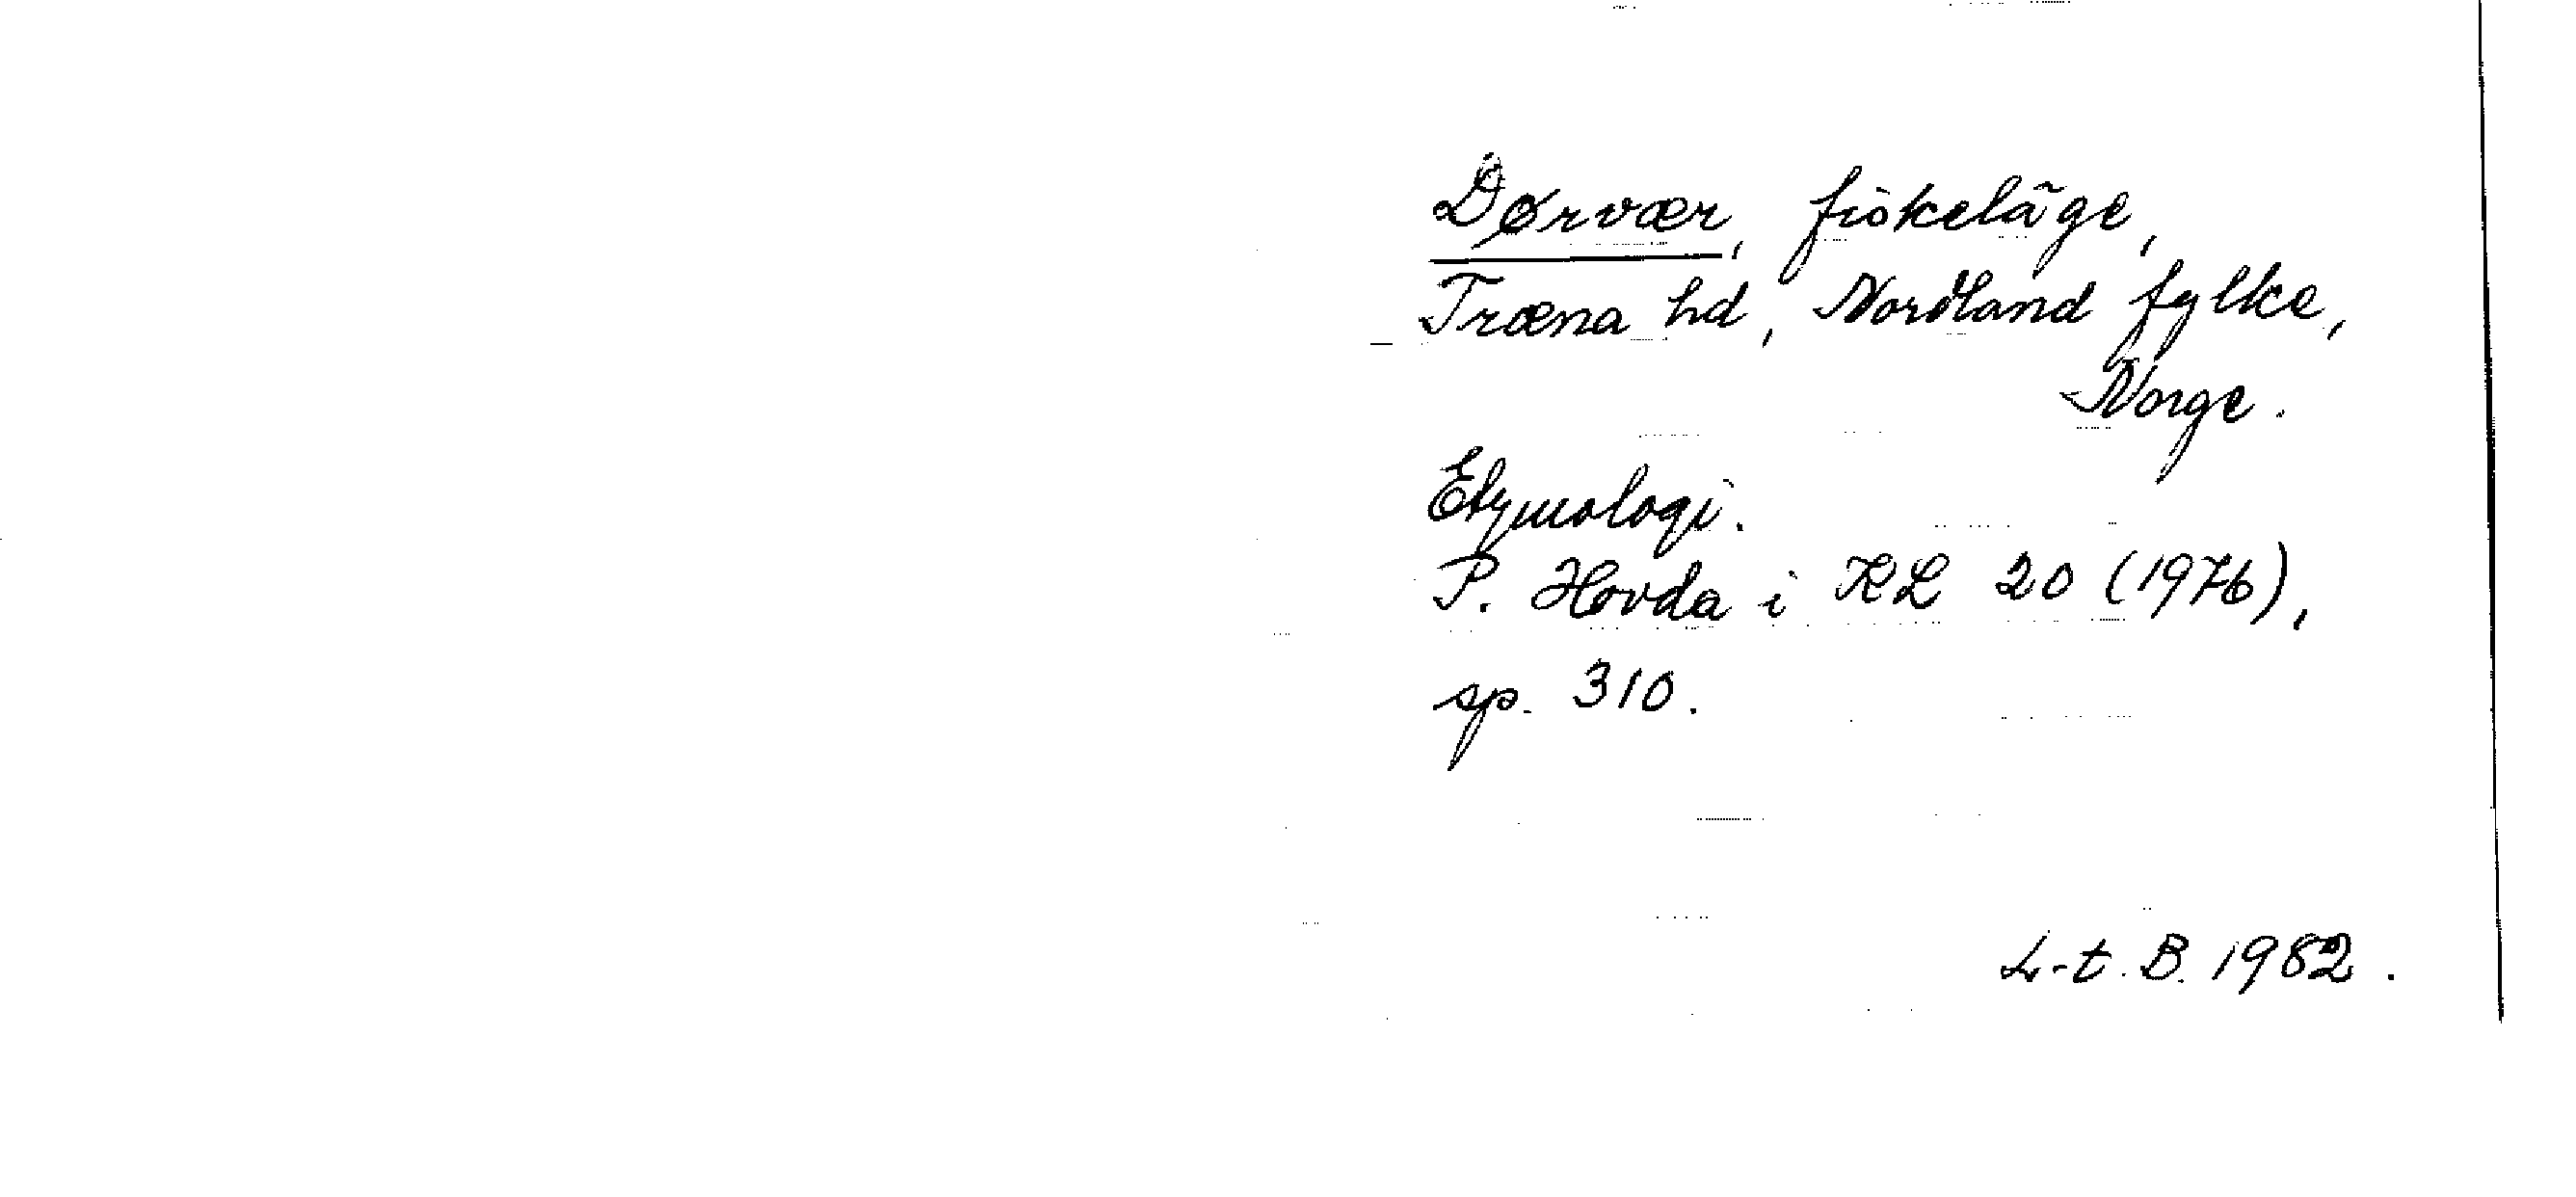 Dørvær, fiskeläge,
Træna hd, Nordland fylke,
Norge.
Etymologi.
P. Hovda i KL 20 (1976),
sp. 310.
L-t. B. 1982.